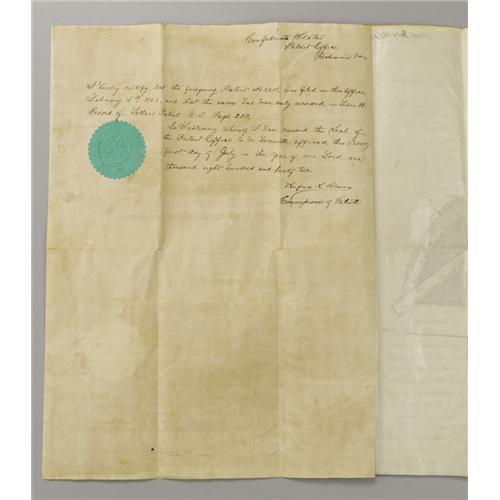 Confederate States
Patent Office
Richmond Va
I hereby certify that the foregoing Patent No was filed in this Office
February 4th 1862, and that the same has been duly recorded, in Liber 18,
Record of Letters Patent U.S. Page 250,
In Testimony whereof I have caused the Seal of
the Patent Office to be hereunto affixed, this Twenty
first day of July in the year of our Lord one
thousand eight hundred and sixty two.
Rufus R. Rhodes
Commissioner of Patents